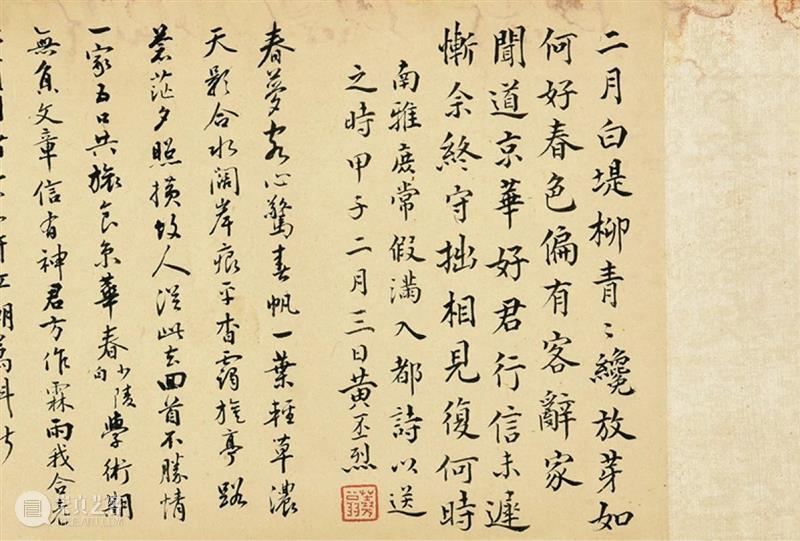 二月白堤柳青〻纔放芽如
何好春色偏有客辭家
聞道京華好君行信未遲
慚余終守拙相見復何時
南雅庶常假滿入都詩以送
之時甲子二月三日黃丕烈
蕘翁
春夢客心驚春帆一葉輕草濃
天影合水闊岸痕平杏靄旗亭路
蒼茫夕照橫故人從此去回首不勝情
一家五口共旅食京華春向少陵學術開
無負文章信有神君方作霖雨我合